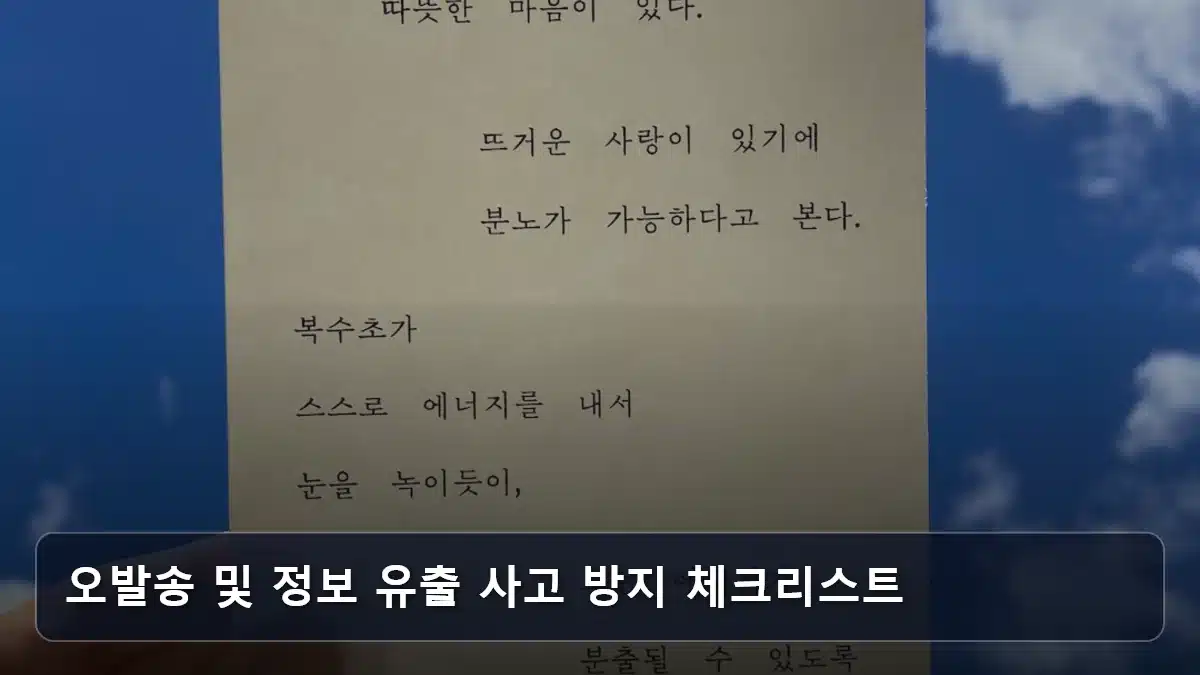 따뜻한 마음이 있다.
뜨거운 사랑이 있기에
분노가 가능하다고 본다.
복수초가
스스로 에너지를 내서
눈을 녹이듯이,
오발송 및 정보 유출 사고 방지 체크리스트
분출될 수 있도록